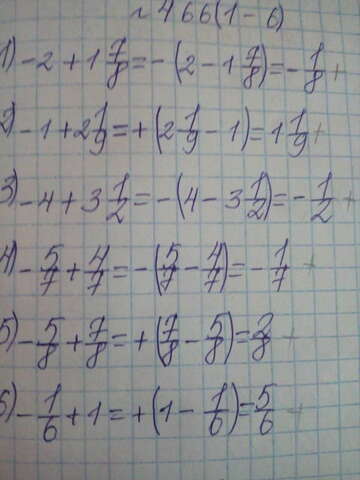 ~466(1-6)
1) -2 + 1 7/8 = -(2 - 1 7/8) = - 1/8 +
2) -1 + 2 1/9 = +(2 1/9 - 1) = 1 1/9 +
3) -4 + 3 1/2 = -(4 - 3 1/2) = - 1/2 +
4) - 5/7 + 4/7 = -(5/7 - 4/7) = - 1/7 +
5) - 5/8 + 7/8 = +(7/8 - 5/8) = 2/8 +
6) - 1/6 + 1 = +(1 - 1/6) = 5/6 +